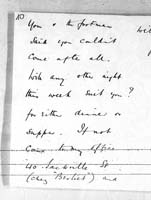 10
You & the footman
said you couldn't
come after all.
Will any other night
this week suit you?
for either dinner or
supper. If not
come to my office
40 Sackville St
(chez "Bristed") and